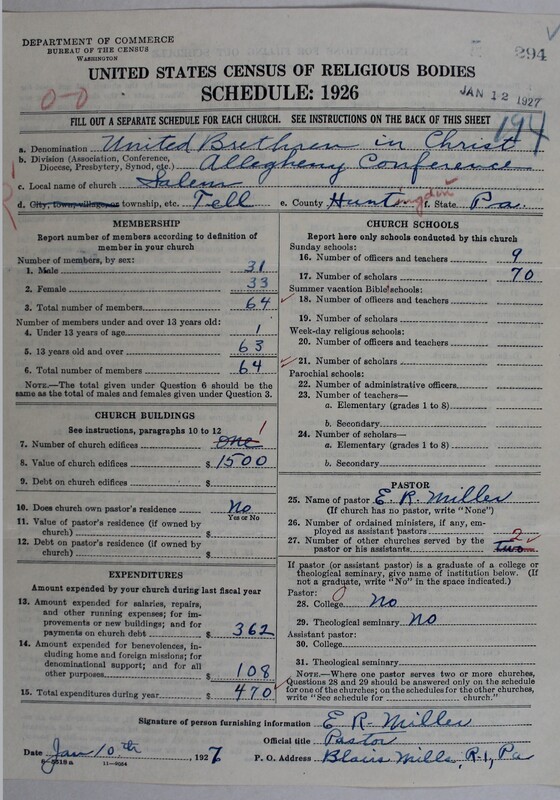 DEPARTMENT OF COMMERCE
BUREAU OF THE CENSUS
WASHINGTON
294
UNITED STATES CENSUS OF RELIGIOUS BODIES
SCHEDULE: 1926
JAN 12 1927
0-0
FILL OUT A SEPARATE SCHEDULE FOR EACH CHURCH. SEE INSTRUCTIONS ON THE BACK OF THIS SHEET
194
a. Denomination United Brethren in Christ
b. Division (Association, Conference, Diocese, Presbytery, Synod, etc.) Allegheny Conference
c. Local name of church Salem
d. City, town, village, or township, etc. Tell e. County Huntingdon f. State Pa.
MEMBERSHIP
Report number of members according to definition of
member in your church
Number of members, by sex:
1. Male 31
2. Female 33
3. Total number of members 64
Number of members under and over 13 years old:
4. Under 13 years of age 1
5. 13 years old and over 63
6. Total number of members 64
NOTE.—The total given under Question 6 should be
same as the total of males and females given under Question 3.
CHURCH BUILDINGS
See instructions, paragraphs 10 to 12
7. Number of church edifices One 1
8. Value of church edifices $ 1500
9. Debt on church edifices $
10. Does church own pastor's residence No
Yes or No
11. Value of pastor's residence (if owned by
church) $
12. Debt on pastor's residence (if owned by
church) $
EXPENDITURES
Amount expended by your church during last fiscal year
13. Amount expended for salaries, repairs,
and other running expenses; for im-
provements or new buildings; and for
payments on church debt $ 362
14. Amount expended for benevolences, in-
cluding home and foreign missions; for
denominational support; and for all
other purposes $ 108
15. Total expenditures during year $ 470
CHURCH SCHOOLS
Report here only schools conducted by this church
Sunday schools:
16. Number of officers and teachers 9
17. Number of scholars 70
Summer vacation Bible schools:
18. Number of officers and teachers
19. Number of scholars
Week-day religious schools:
20. Number of officers and teachers
21. Number of scholars
Parochial schools:
22. Number of administrative officers
23. Number of teachers—
a. Elementary (grades 1 to 8)
b. Secondary
24. Number of scholars—
a. Elementary (grades 1 to 8)
b. Secondary
PASTOR
25. Name of pastor E. R. Miller
(If church has no pastor, write "None")
26. Number of ordained ministers, if any, em-
ployed as assistant pastors
27. Number of other churches served by the
pastor or his assistants Two 2
If pastor (or assistant pastor) is a graduate of a college or
theological seminary, give name of institution below. (If
not a graduate, write "No" in the space indicated.)
Pastor:
28. College No 0
29. Theological seminary No
Assistant pastor:
30. College
31. Theological seminary
NOTE.—Where one pastor serves two or more churches,
Questions 28 and 29 should be answered only on the schedule
for one of the churches; on the schedules for the other churches,
write "See schedule for church."
Signature of person furnishing information E R Miller
Official title Pastor
Date Jan 10th, 1927 P. O. Address Blairs Mills, R-1, Pa
11-9024